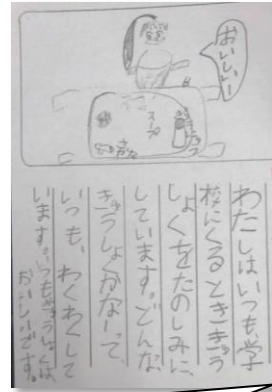 おいしいー
スープ
さかな
わたしはいつも、学
校にくるとききゅう
しょくをたのしみに、
しています。どんな、
きゅうしょくかなーって、
いつも、わくわくして
います。いつもきゅうしょくは、
おいしいです。